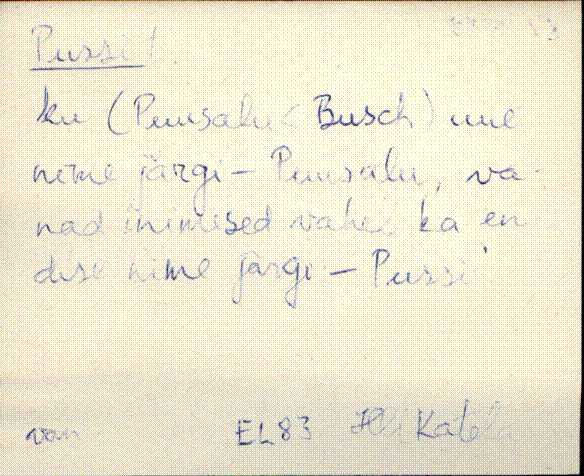 Pussi t.
ku (Puusalu < Busch) uue
nime järgi – Puusalu, va-
nad inimesed vahel ka en
dise nime järgi – Pussi
van EL83 Kat